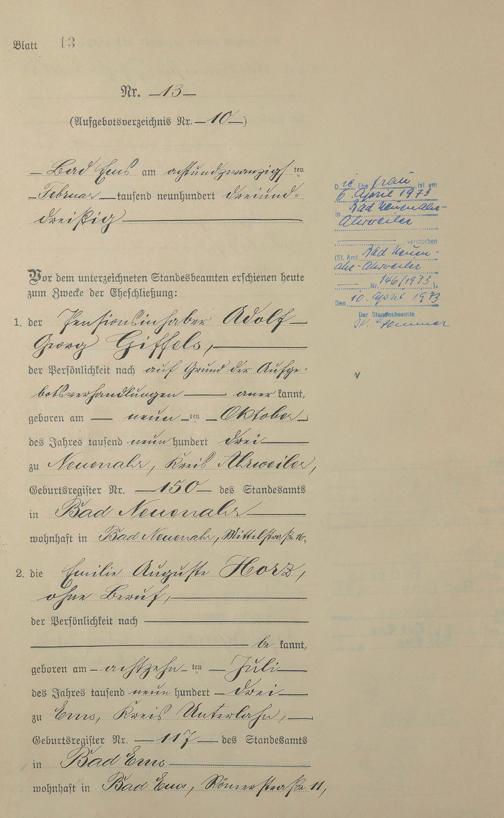 Blatt 13
Nr. 13
(Aufgebotsverzeichnis Nr. 10)
Bad Ems am achtundzwanzigsten
Februar tausend neunhundert dreiund-
dreißig
Vor dem unterzeichneten Standesbeamten erschienen heute
zum Zwecke der Eheschließung:
1. der Pensionsinhaber Adolf
Georg Giffels,
der Persönlichkeit nach auf Grund der Aufge-
botsverhandlungen anerkannt,
geboren am neunten Oktober
des Jahres tausend neunhundert drei
zu Neuenahr, Kreis Ahrweiler,
Geburtsregister Nr. 150 des Standesamts
in Bad Neuenahr
wohnhaft in Bad Neuenahr, Mittelstraße 16.
2. die Emilie Auguste Horz,
ohne Beruf,
der Persönlichkeit nach
bekannt,
geboren am achtzehnten Juli
des Jahres tausend neunhundert drei
zu Ems, Kreis Unterlahn,
Geburtsregister Nr. 117 des Standesamts
in Bad Ems
wohnhaft in Bad Ems, Römerstraße 11,
Ehefrau ist am
6. April 1973
in Bad Neuenahr-
Ahrweiler
verstorben
(St. Amt Bad Neuen-
ahr-Ahrweiler
Nr. 146/1973)
Den 10. April 1973
Der Standesbeamte